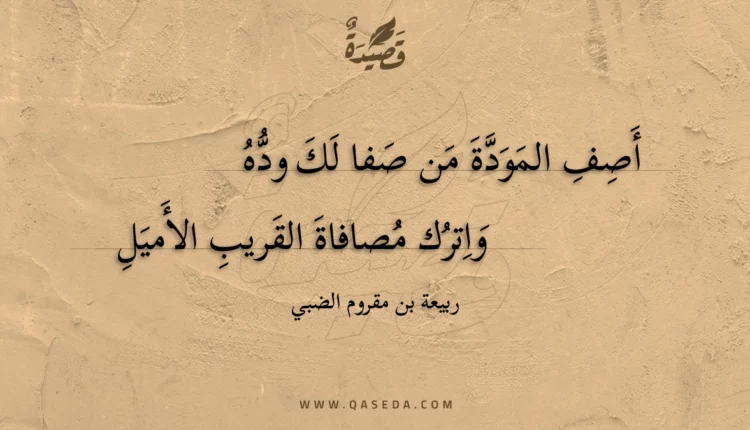 قَصِيدَةٌ
أَصِفِ المَوَدَّةَ مَن صَفا لَكَ ودُّهُ
وَاِترُك مُصافاةَ القَريبِ الأَميَلِ
ربيعة بن مقروم الضبي
WWW.QASEDA.COM